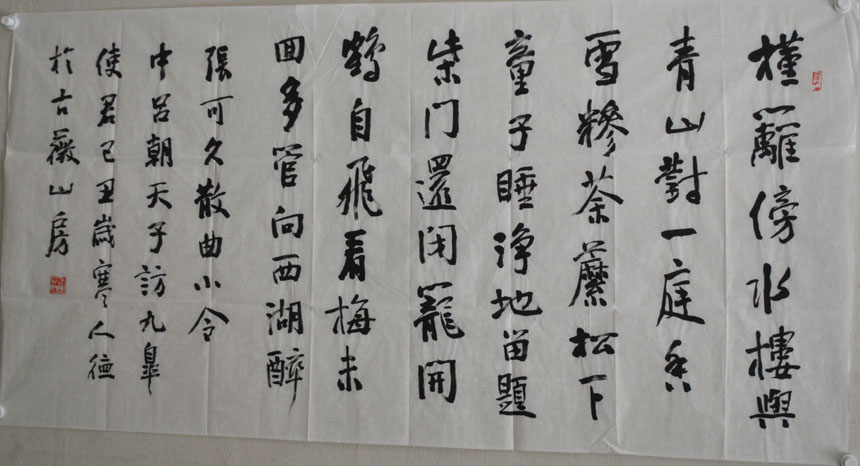 槿籬傍水樓與
青山對一庭香
雪糝荼蘼松下
童子睡淨地留題
柴门還闭籠開
鶴自飛看梅未
回多管向西湖醉
張可久散曲小令
中呂朝天子訪九皐
使君己丑歲寒人德
於古薇山房